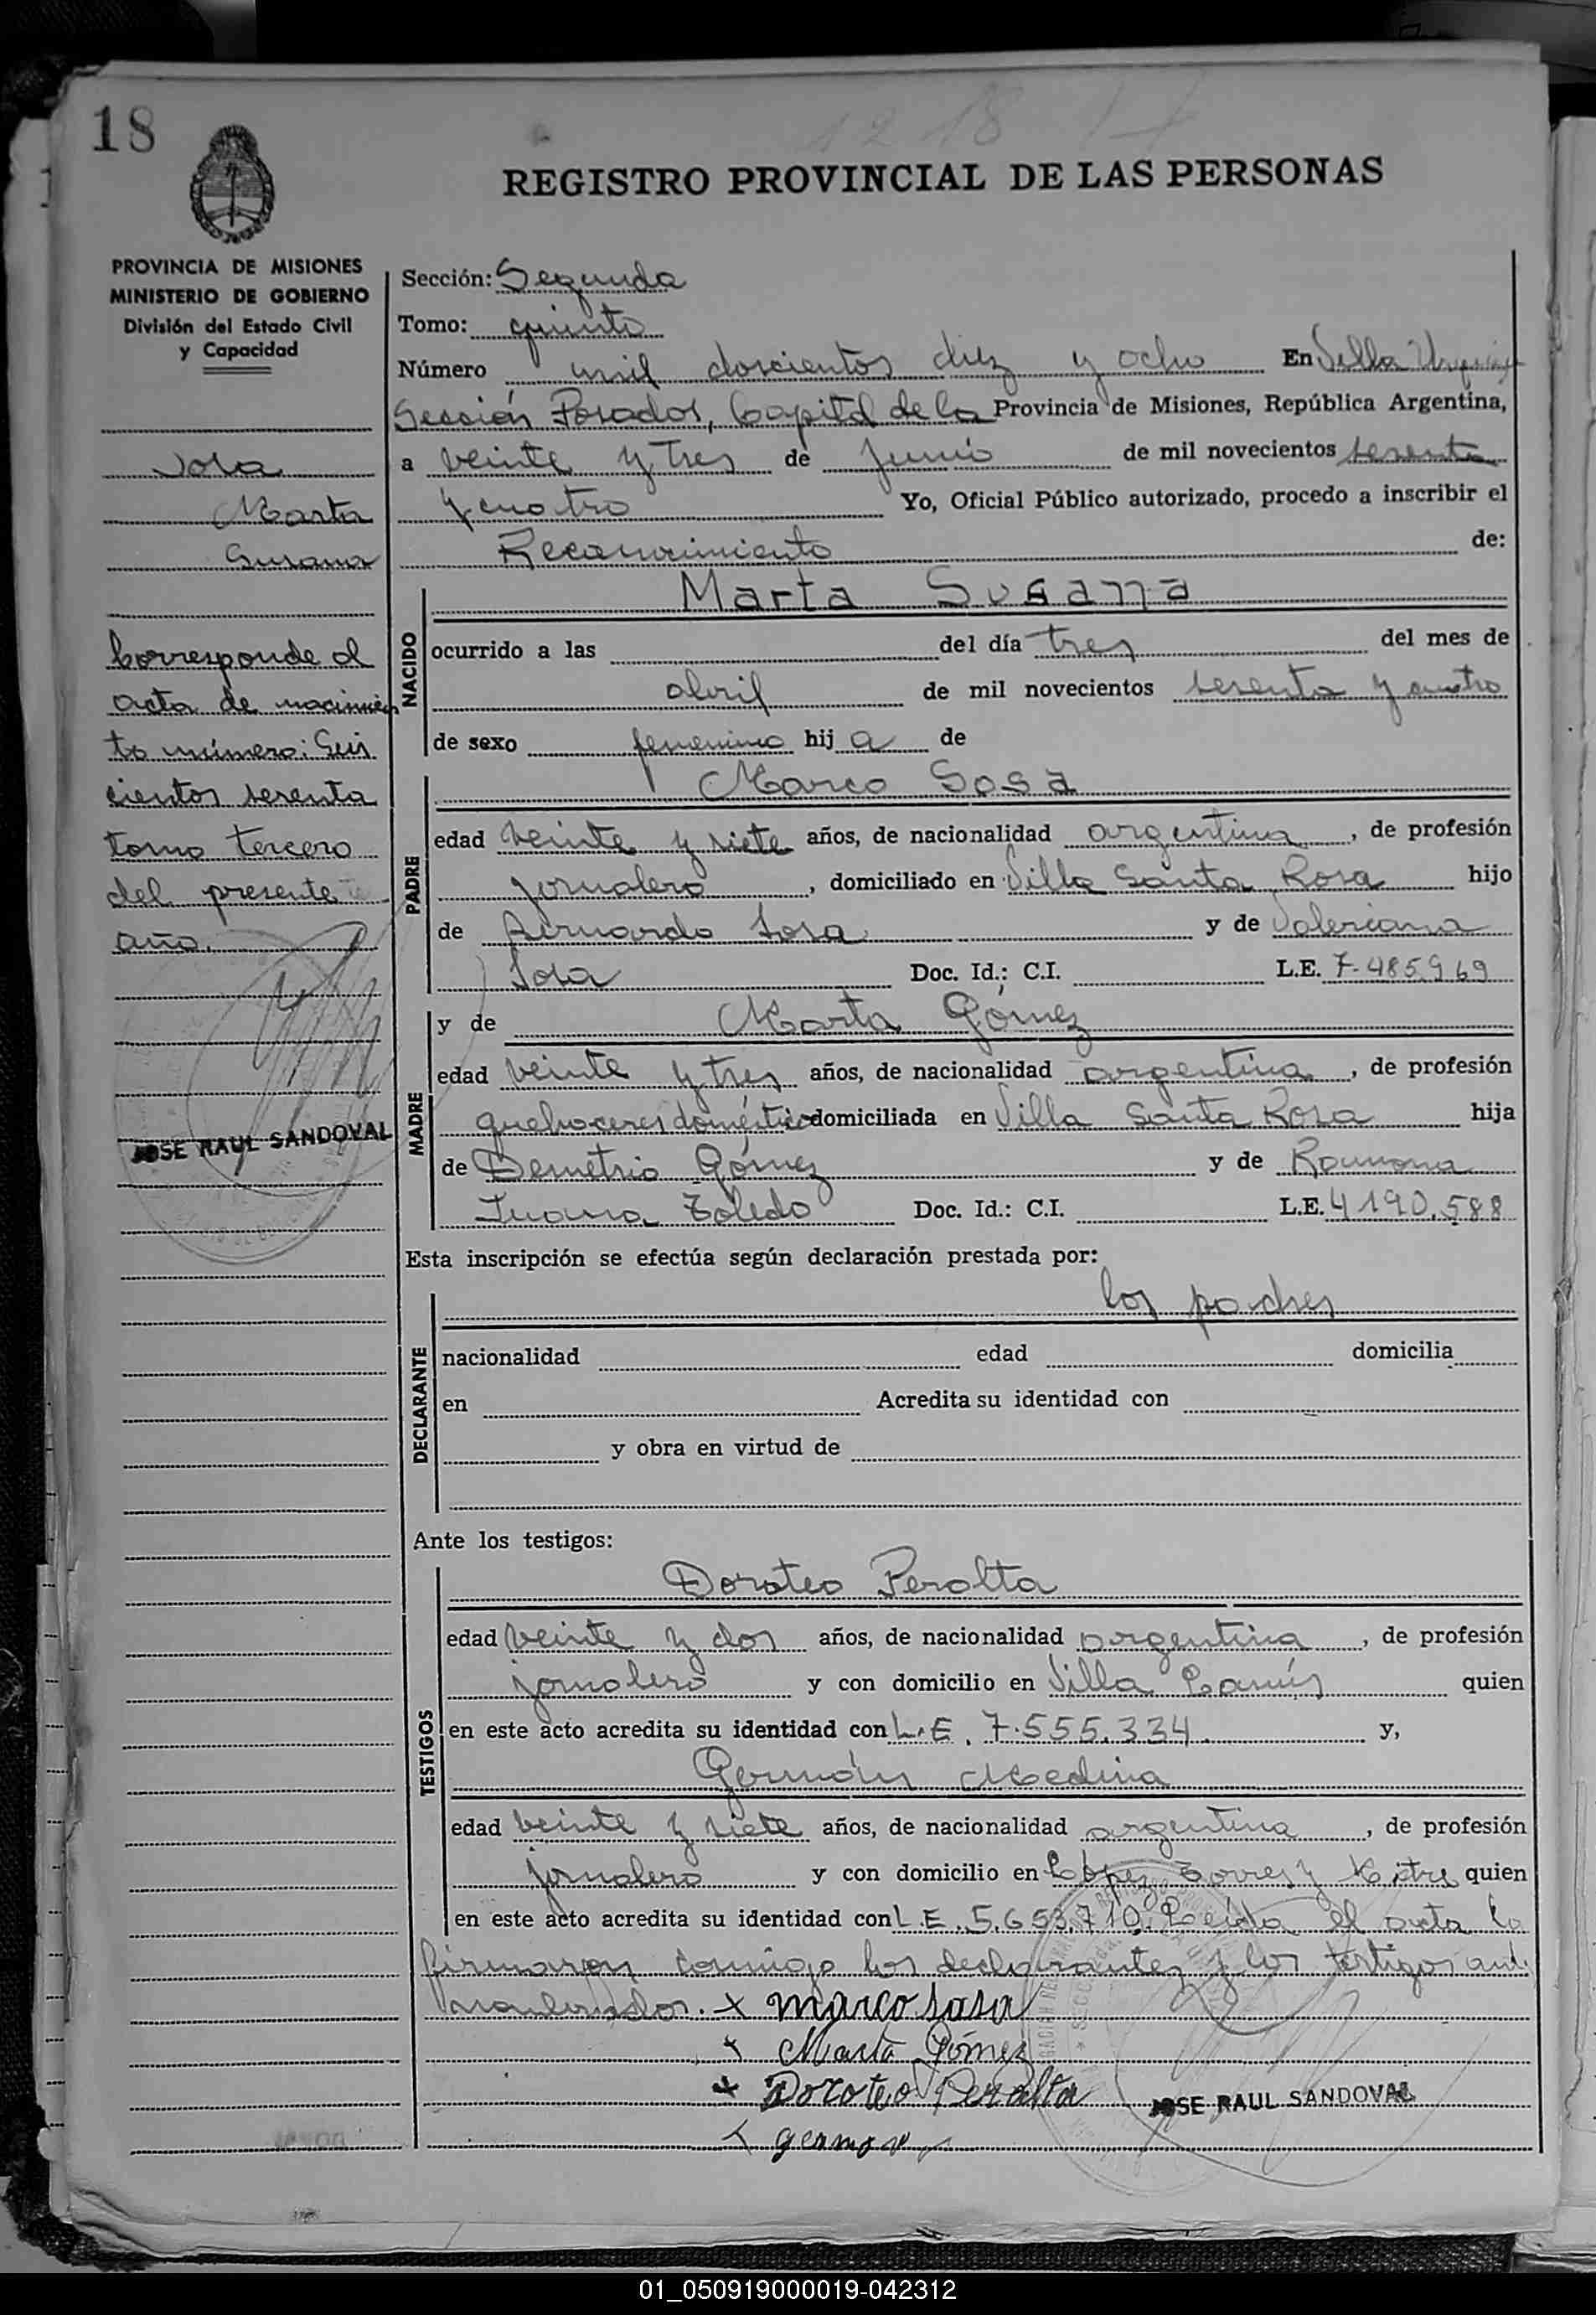 18
REGISTRO PROVINCIAL DE LAS PERSONAS
PROVINCIA DE MISIONES
MINISTERIO DE GOBIERNO
División del Estado Civil
y Capacidad
Sosa
Marta
Susana
Corresponde al
acta de nacimien
to número: Seis
cientos sesenta
tomo tercero
del presente
año.
JOSE RAUL SANDOVAL
Sección: Segunda
Tomo: quinto
Número mil doscientos diez y ocho En Villa Urquiza
Sección Posadas, Capital de la Provincia de Misiones, República Argentina,
a veinte y tres de Junio de mil novecientos sesenta
y cuatro Yo, Oficial Público autorizado, procedo a inscribir el
Reconocimiento de:
NACIDO
Marta Susana
ocurrido a las del día tres del mes de
abril de mil novecientos sesenta y cuatro
de sexo femenino hij a de
PADRE
Marco Sosa
edad veinte y siete años, de nacionalidad argentina, de profesión
jornalero, domiciliado en Villa Santa Rosa hijo
de Bernardo Sosa y de Valeriana
Sosa Doc. Id.: C.I. L.E. 7.485.969
MADRE
y de Marta Gómez
edad veinte y tres años, de nacionalidad argentina, de profesión
quehaceres domésticos domiciliada en Villa Santa Rosa hija
de Demetrio Gómez y de Ramona
Juana Toledo Doc. Id.: C.I. L.E. 4190.588
Esta inscripción se efectúa según declaración prestada por:
DECLARANTE
los padres
nacionalidad edad domicilia
en Acredita su identidad con
y obra en virtud de
Ante los testigos:
TESTIGOS
Doroteo Peralta
edad veinte y dos años, de nacionalidad argentina, de profesión
jornalero y con domicilio en Villa Lanús quien
en este acto acredita su identidad con L.E. 7.555.334. y,
Germán Medina
edad veinte y siete años, de nacionalidad argentina, de profesión
jornalero y con domicilio en López Torres y Mitre quien
en este acto acredita su identidad con L.E. 5.653.710. Leída el acta la
firmaron conmigo los declarantes y los testigos ant.
nombrados. x marco sosa
x Marta Gómez
x Doroteo Peralta
JOSE RAUL SANDOVAL
x german
01_050919000019-042312